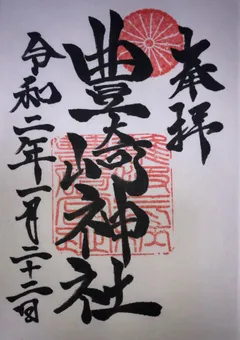 奉拝
豊崎神社
令和二年一月二十二日